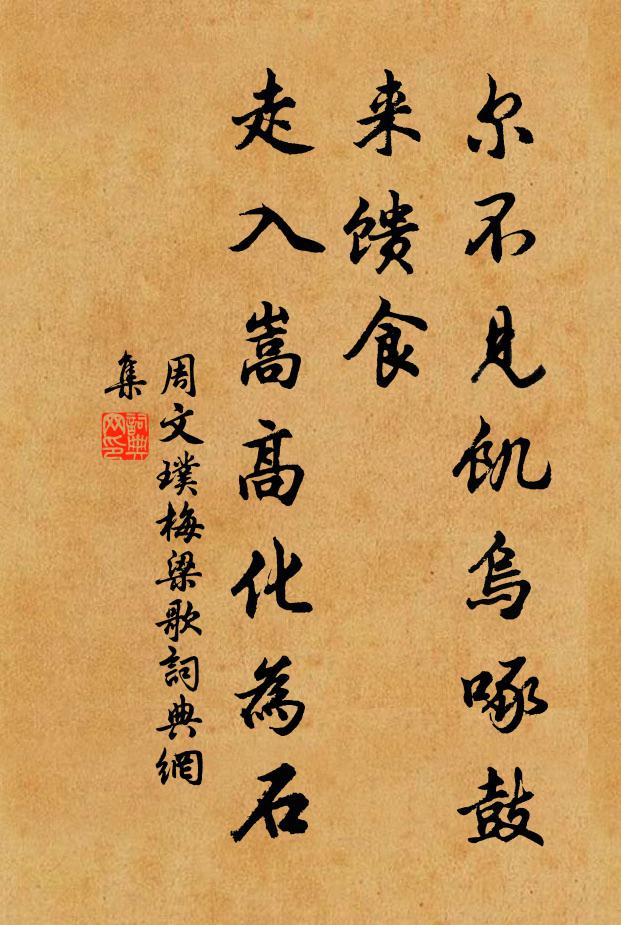 尔不见飢烏啄鼓
来馈食
走入嵩高化為石
周文璞梅梁歌詞典網
集
詞典
网印